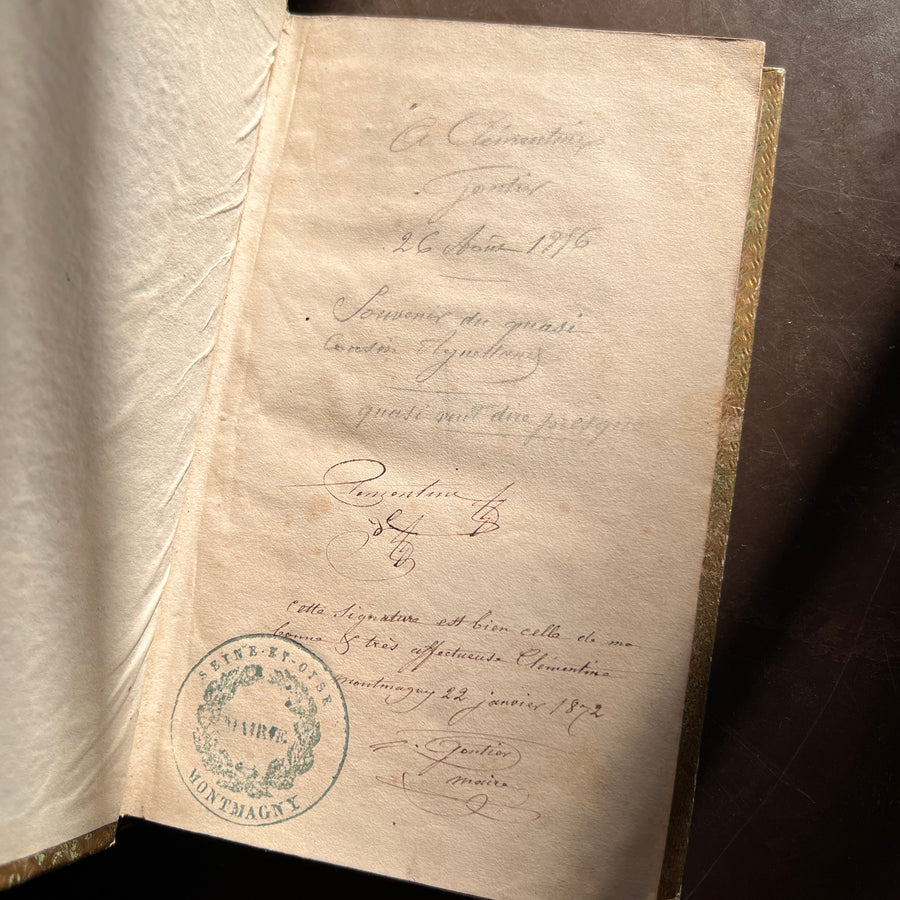 à Clémentine
Gontier
26 Août 1876
Souvenir du quasi
Cousin
quasi veut dire presque
Clementine
cette signature est bien celle de ma
bonne & très affectueuse Clémentine
montmagny 22 janvier 1872
Gontier
maire
SEINE-ET-OISE
MAIRIE
MONTMAGNY